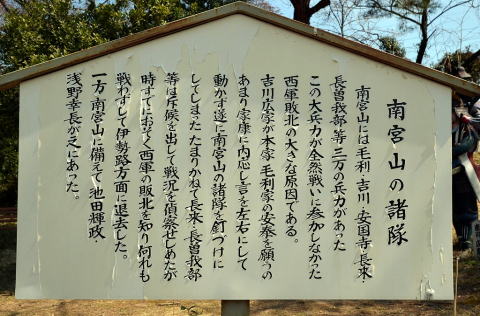 南宮山の諸隊
南宮山には毛利・吉川・安国寺・長束・
長曽我部等二万の兵力があった
この大兵力が全然戦いに参加しなかった
西軍敗北の大きな原因である。
吉川広家が本家毛利家の安泰を願うの
あまり家康に内応し言を左右にして
動かず遂に南宮山の諸隊を釘づけに
してしまった たまりかねて長束・長曽我部
等は斥候を出して戦況を偵察せしめたが
時すでにおそく西軍の敗北を知り何れも
戦わずして伊勢路方面に退去した。
一方南宮山に備えて池田輝政・
浅野幸長が之にあった。